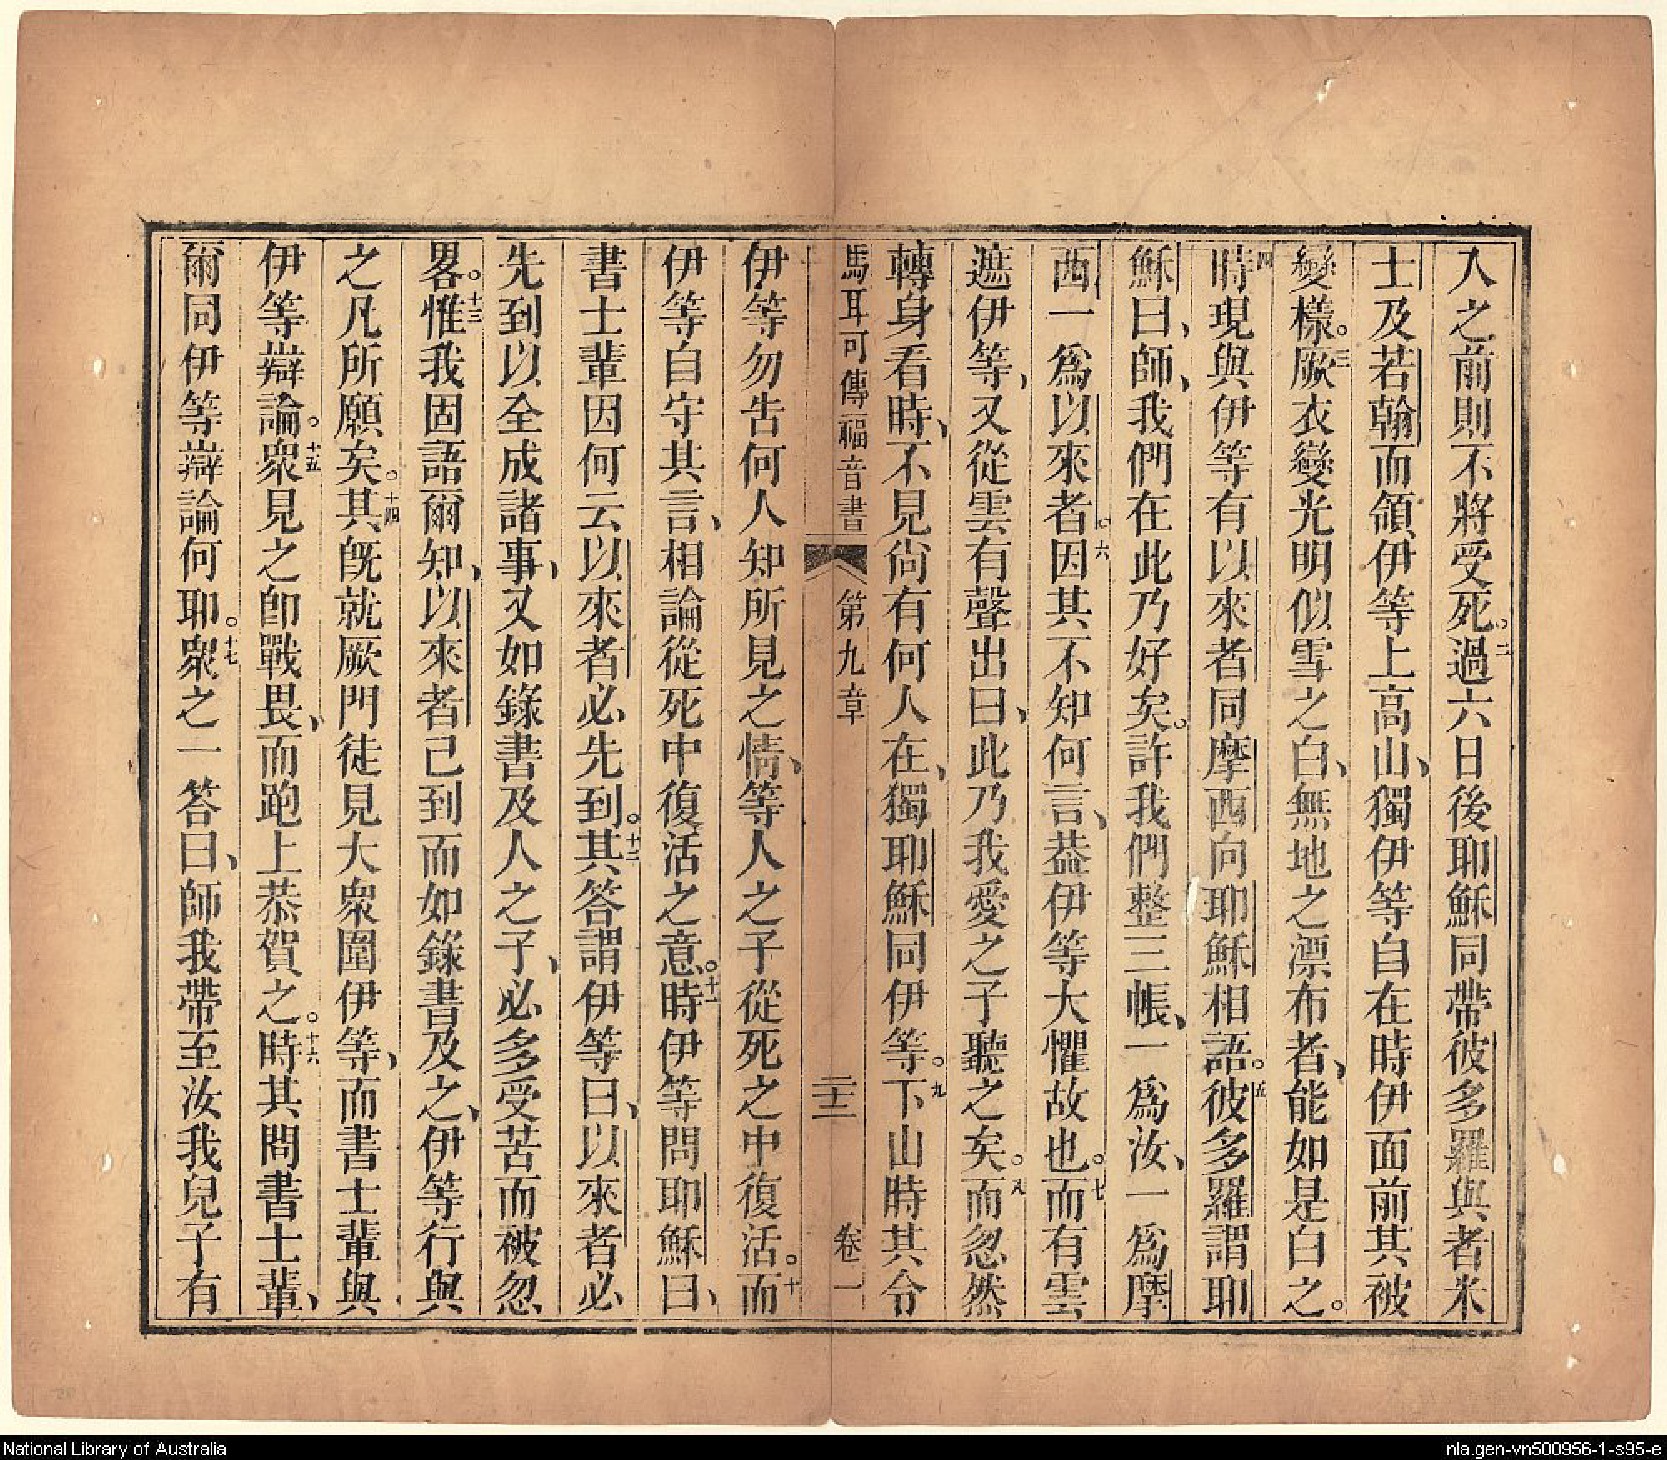 入之前則不將受死。二過六日後耶穌同帶彼多羅與者米
士及若翰而領伊等上高山、獨伊等自在時伊面前其被
變樣。三厥衣變光明似雪之白、無地之漂布者、能如是白之。
四時現與伊等有以來者同摩西向耶穌相語。五彼多羅謂耶
穌曰、師、我們在此乃好矣。許我們整三帳、一爲汝、一爲摩
西一爲以來者。六因其不知何言、葢伊等大懼故也。七而有雲
遮伊等、又從雲有聲出曰、此乃我愛之子聽之矣。八而忽然
轉身看時、不見尙有何人在、獨耶穌同伊等。九下山時其令
馬耳可傳福音書 第九章 二十二 卷一
伊等勿告何人知所見之情、等人之子從死之中復活。十而
伊等自守其言、相論從死中復活之意。十一時伊等問耶穌曰、
書士輩因何云以來者必先到。十二其答謂伊等曰、以來者必
先到以全成諸事、又如錄書及人之子、必多受苦而被忽
畧。十三惟我固語爾知、以來者已到而如錄書及之、伊等行與
之凡所願矣。十四其旣就厥門徒見大衆圍伊等、而書士輩與
伊等辯論。十五衆見之卽戰畏、而跑上恭賀之。十六時其問書士輩、
爾同伊等辯論何耶。十七衆之一答曰、師我帶至汝我兒子有
National Library of Australia
nla.gen-vn500956-1-s95-e